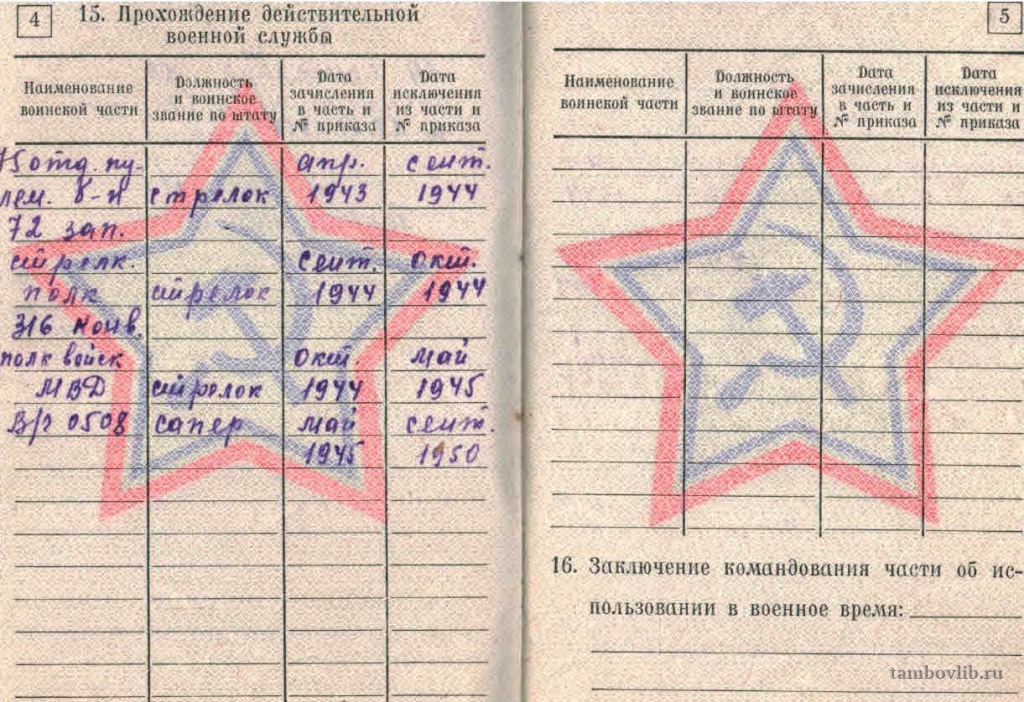 4
15. Прохождение действительной
военной службы
Наименование
воинской части
Должность
и воинское
звание по штату
Дата
зачисления
в часть и
№ приказа
Дата
исключения
из части и
№ приказа
отд. пу- апр. сент.
лем. б-н стрелок 1943 1944
72 зап.
стрелк. сент. окт.
полк стрелок 1944 1944
316 конв.
полк войск окт. май
МВД стрелок 1944 1945
В/ч 0508 сапер май сент.
1945 1950
5
Наименование
воинской части
Должность
и воинское
звание по штату
Дата
зачисления
в часть и
№ приказа
Дата
исключения
из части и
№ приказа
16. Заключение командования части об ис-
пользовании в военное время:
tambovlib.ru